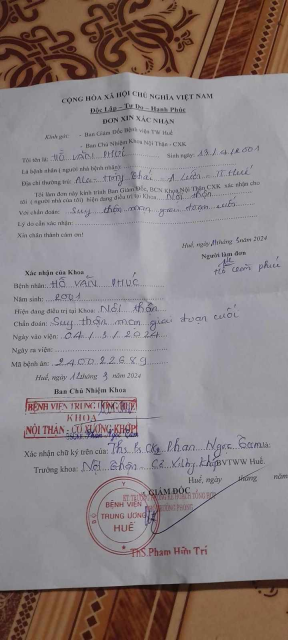 CỘNG HÒA XÃ HỘI CHỦ NGHĨA VIỆT NAM
Độc Lập – Tự Do – Hạnh Phúc
ĐƠN XIN XÁC NHẬN
Kính gửi: - Ban Giám Đốc Bệnh viện TW Huế
- Ban Chủ Nhiệm Khoa Nội Thận - CXK
Tôi tên là: HỒ VĂN PHÚC Sinh ngày: 13/4/2001
Là bệnh nhân ( người nhà bệnh nhân):
Địa chỉ thường trú: A Lưới - TT Huế
Tôi làm đơn này kính trình Ban Giám Đốc, BCN Khoa Nội Thận CXK xác nhận cho
tôi ( người nhà của tôi) hiện đang điều trị tại Khoa: Nội thận
Với chẩn đoán: Suy thận mạn giai đoạn cuối
Lý do cần xác nhận:
Xin chân thành cảm ơn!
Huế, tháng 3 năm 2024
Người làm đơn
Hồ Văn Phúc
Xác nhận của Khoa
Bệnh nhân: HỒ VĂN PHÚC
Năm sinh: 2001
Hiện đang điều trị tại Khoa: Nội thận
Chẩn đoán: Suy thận mạn giai đoạn cuối
Ngày vào viện: 04/3/2024
Ngày ra viện:
Mã bệnh án: 240022689
Huế, 11 tháng 3 năm 2024
Ban Chủ Nhiệm Khoa
BỆNH VIỆN TRUNG ƯƠNG HUẾ
KHOA
NỘI THẬN - CƠ XƯƠNG KHỚP
Xác nhận chữ ký trên của: Ths Bs Phan Ngọc
Trưởng khoa: Nội thận - Cơ Xương Khớp BVTW Huế.
Huế, ngày tháng năm
GIÁM ĐỐC
BỆNH VIỆN
TRUNG ƯƠNG
HUẾ
ThS. Phạm Hữu Trí